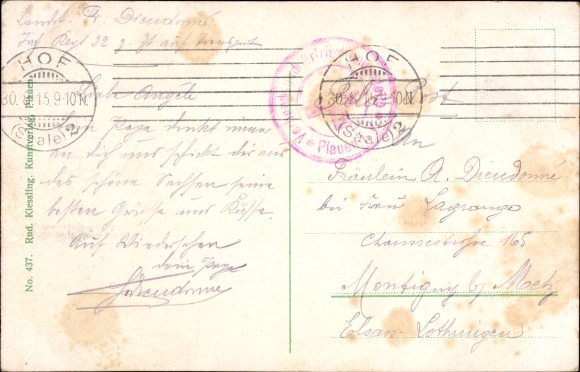 Landst. R. Dieudonné
Inf. Regt 22 z. Zt auf Transport
HOF
30. 15.9-10N.
(Saale) 2
HOF
30. 15.9-10N.
(Saale) 2
Plauen
Liebe Angele
Dein Papa denkt immer
an dich und schickt dir aus
das schöne Sachsen seine
besten Grüsse und Küsse.
Auf Wiedersehen
dein Papa
Dieudonné
An
Fräulein A. Dieudonné
bei Frau Lagrange
Chausseestrasse 165
Montigny b/ Metz
Elsass-Lothringen
No. 437. Rud. Kiessling, Kunstverlag, Plauen